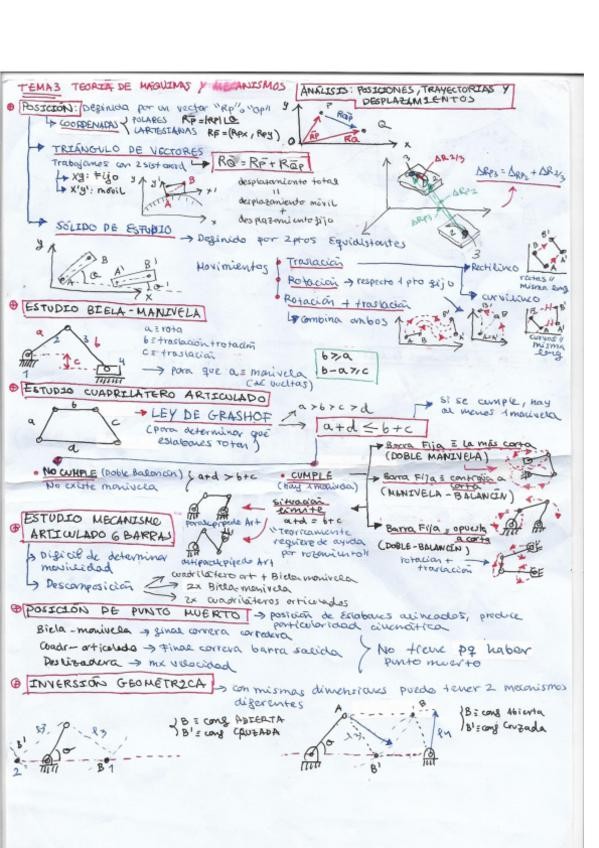 TEMA 3 TEORIA DE MÁQUINAS Y MECANISMOS
ANÁLISIS: POSICIONES, TRAYECTORIAS Y DESPLAZAMIENTOS
POSICIÓN: Definida por un vector "Rp" o "Op"
COORDENADAS
POLARES Rp = |Rp| θ
CARTESIANAS Rp = (Rpx, Rpy)
TRIÁNGULO DE VECTORES
Trabajamos con 2 sist coord
RQ = RP + RQP
xy: Fijo
x'y': móvil
desplazamiento total
=
desplazamiento móvil
+
desplazamiento fijo
ΔRP3 = ΔRP2 + ΔR2/3
SÓLIDO DE ESTUDIO → Definido por 2 ptos Equidistantes
Movimientos
Traslación
Rotación → respecto 1 pto fijo
Rotación + traslación
Combina ambos
Rectilíneo
rectas // misma long
curvilíneo
curvas // misma long
ESTUDIO BIELA-MANIVELA
a = rota
b = traslación + rotación
c = traslación
para que a = manivela
b ≥ a
b - a ≥ c
ESTUDIO CUADRILÁTERO ARTICULADO
LEY DE GRASHOF
(para determinar qué eslabones rotan)
a > b > c > d
a + d ≤ b + c
si se cumple, hay al menos 1 manivela
NO CUMPLE (Doble Balancín)
No existe manivela
a + d > b + c
CUMPLE
(hay 1 manivela)
Barra Fija ≡ la más corta
(DOBLE MANIVELA)
Barra Fija ≡ contigua a corta
(MANIVELA-BALANCÍN)
Barra Fija = opuesta a corta
(DOBLE-BALANCÍN)
rotación + traslación
situación límite
a + d = b + c
"Teóricamente requiere de ayuda por rozamiento"
paralepípedo Art
antiparalepípedo Art
ESTUDIO MECANISMO ARTICULADO 6 BARRAS
Difícil de determinar movilidad
Descomposición
cuadrilátero art + Biela-manivela
2x Biela-manivela
2x cuadriláteros articulados
POSICIÓN DE PUNTO MUERTO → posición de Eslabones alineados, produce particularidad cinemática
Biela-manivela → final carrera corredera
Cuadr-articulado → Final carrera barra salida
Deslizadera → mx velocidad
No tiene pq haber punto muerto
INVERSIÓN GEOMÉTRICA → con mismas dimensiones puedo tener 2 mecanismos diferentes
B ≡ conf ABIERTA
B' ≡ conf CRUZADA
B ≡ conf Abierta
B' ≡ conf Cruzada